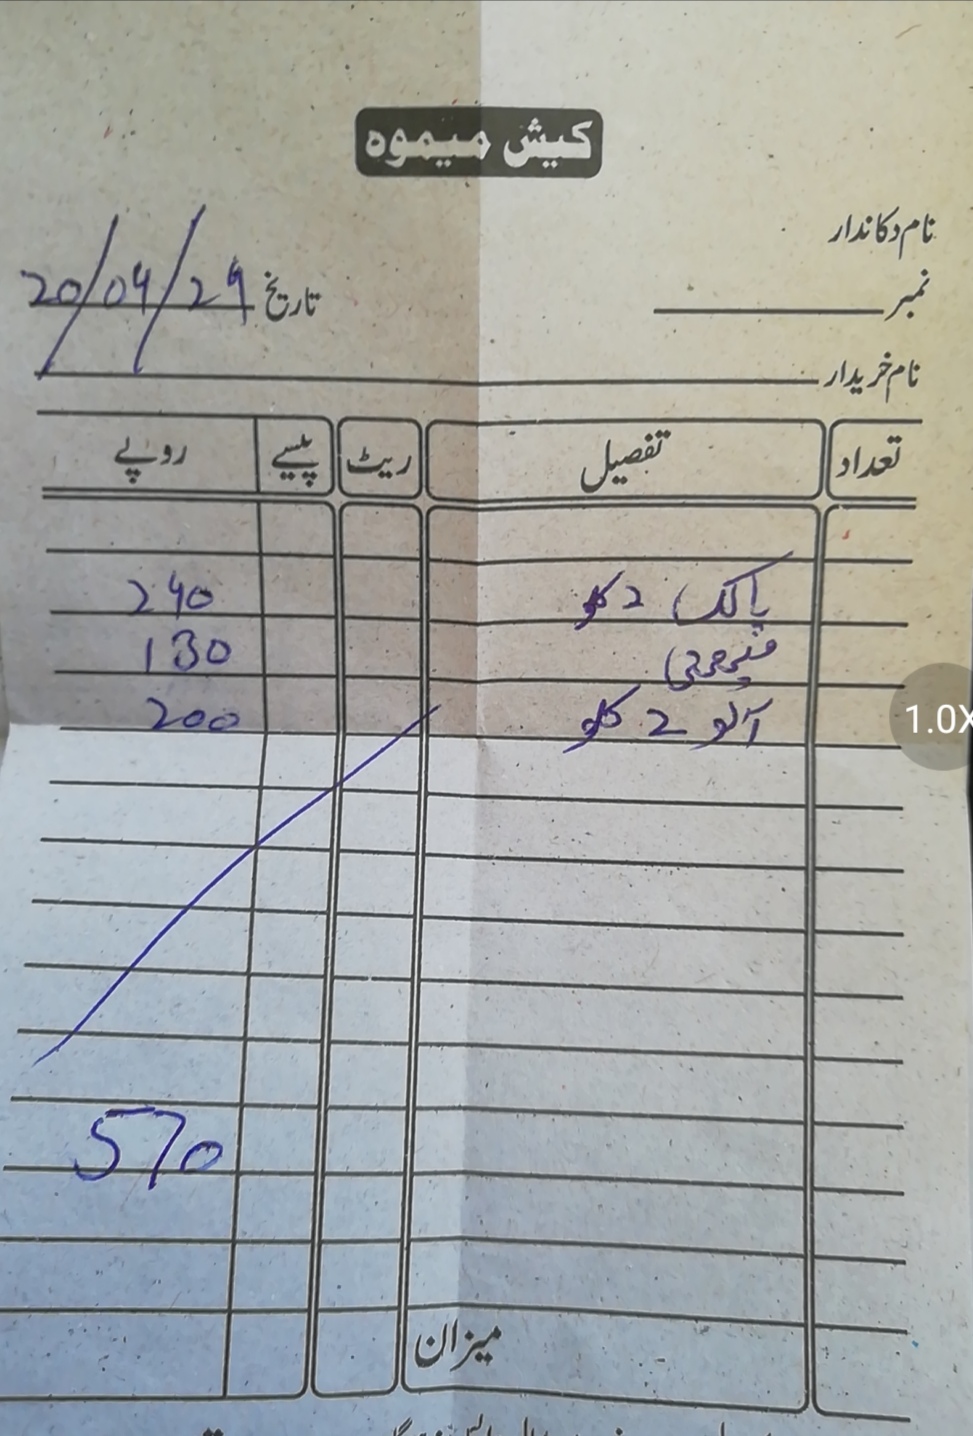 کیش میموہ
نام دکاندار
نمبر
تاریخ 20/04/24
نام خریدار
تعداد تفصیل ریٹ پیسے روپے
پالک 2 کلو 240
130
آلو 2 کلو 200
570
میزان
1.0X